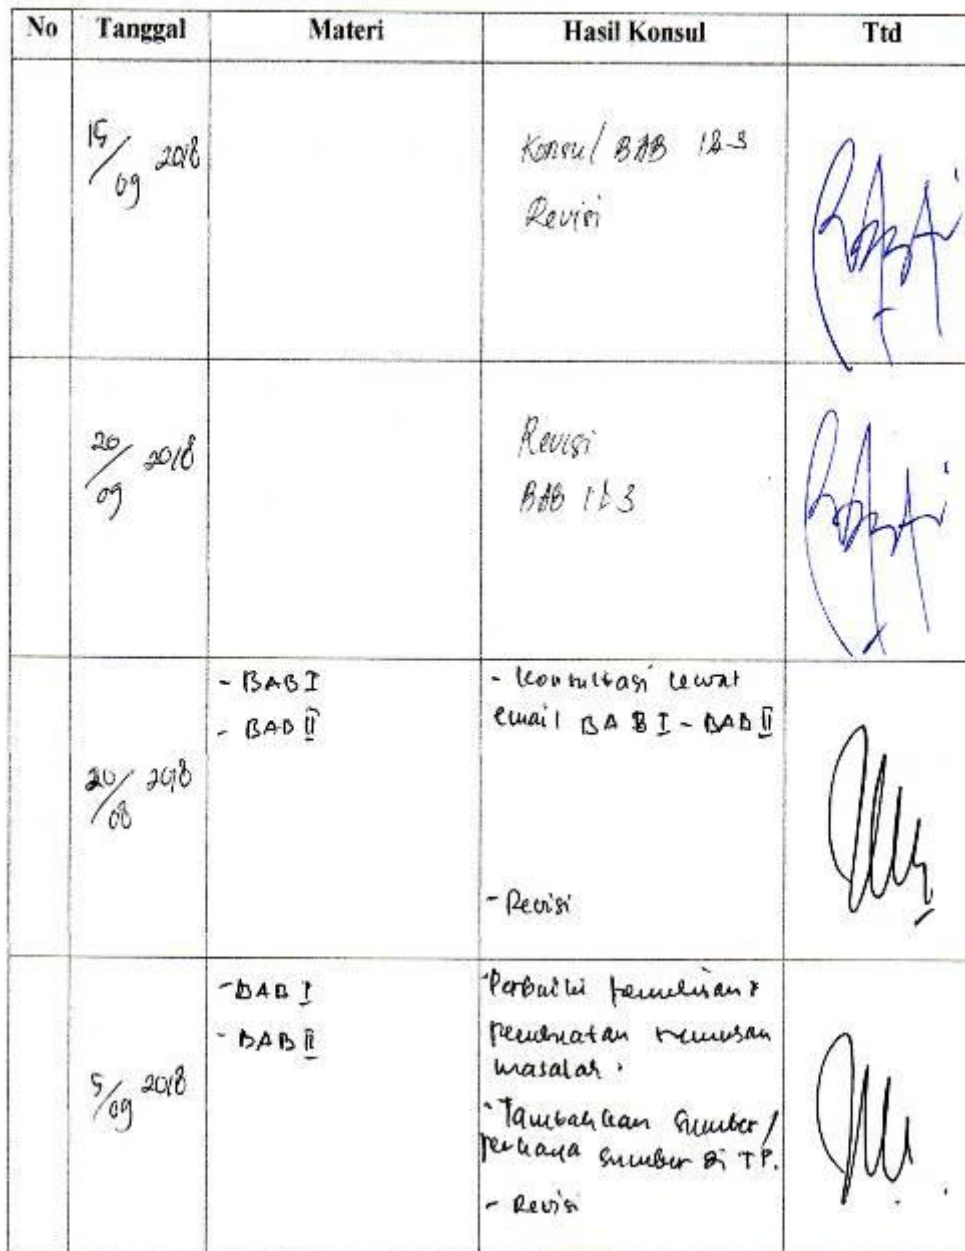 No Tanggal Materi Hasil Konsul Ttd
15/09 2018
Konsul BAB 1&3
Revisi
20/09 2018
Revisi
BAB 1&3
20/08 2018
- BAB I
- BAB II
- Konsultasi lewat
email BAB I - BAB II
- Revisi
5/09 2018
- BAB I
- BAB II
- Perbaiki penulisan &
pembuatan rumusan
masalah.
- Tambahkan sumber/
perkaya sumber di TP.
- Revisi